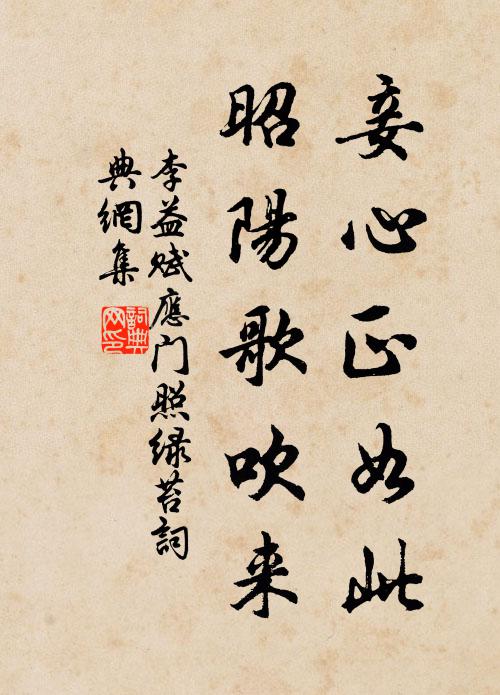 妾心正如此
昭陽歌吹来
李益赋應门照緑苔詞
典網集
詞典网印